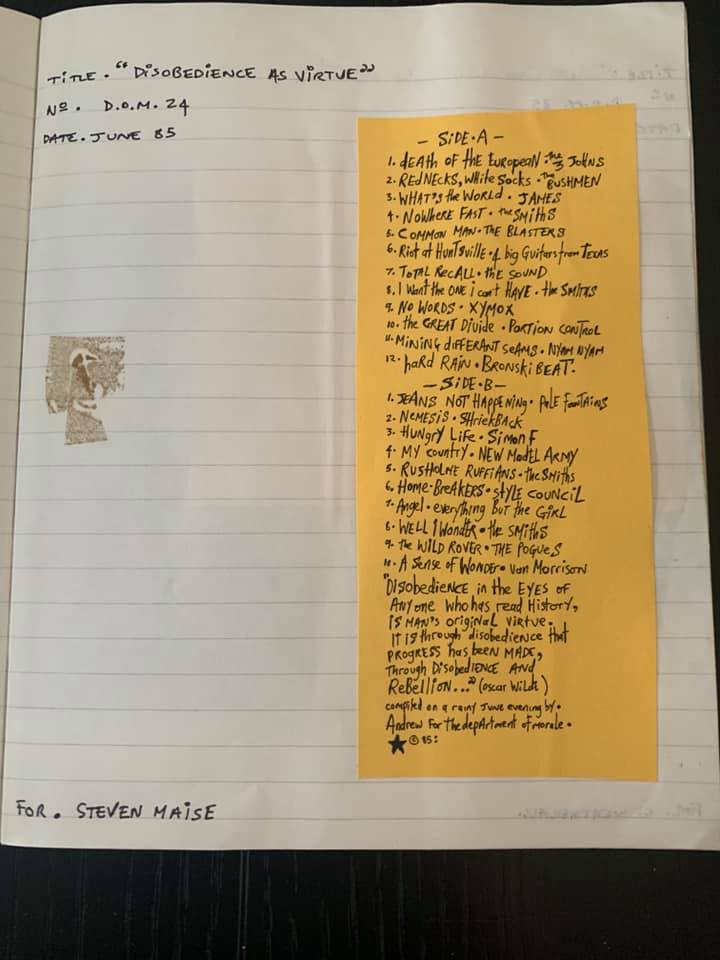 TITLE. "DISOBEDIENCE AS VIRTUE"
Nº. D.O.M. 24
DATE. JUNE 85
— SIDE.A —
1. dEATH OF tHE EUROPEAN. the 3 JOHNS
2. REDNECKS, WHite SOCKS. The BUSHMEN
3. WHAT'S the WORLD. JAMES
4. NOWHERE FAST. the SMITHS
5. COMMON MAN. THE BLASTERS
6. Riot at HUNTSVILLE. 4 big Guitars from TEXAS
7. TOTAL RECALL. tHE SOUND
8. I WANt tHE ONE i can't HAVE. the SMITHS
9. NO WORDS. XYMOX
10. the GREAT Divide. PORTION CONTROL
11. MINING diFFERANT SEAMS. NYAM NYAM
12. hARd RAIN. BRONSKI BEAT.
— SIDE.B —
1. JEANS NOT HAPPENING. PALE FOUNTAINS
2. NEMESIS. SHRIEKBACK
3. HUNGRY LIFE. SIMON F
4. MY COUNTRY. NEW MODEL ARMY
5. RUSHOLME RUFFIANS. the SMiths
6. HOME-BREAKERS. STYLE COUNCIL
7. Angel. everything BUT the GIRL
8. WELL I WONDER. the SMITHS
9. the WILD ROVER. THE POGUES
10. A SENSE OF WONDER. VAN MORRISON
"DISOBEDIENCE in the EYES OF
ANYONE WHO HAS READ HISTORY,
IS MAN'S ORIGINAL VIRTUE.
IT IS through disobedience that
PROGRESS has been MADE,
through DISOBEDIENCE AND
REBELLION..." (OSCAR WILDE)
compiled on a rainy JUNE evening by.
Andrew for the depARTment of morale.
★ © 85:
FOR. STEVEN MAISE